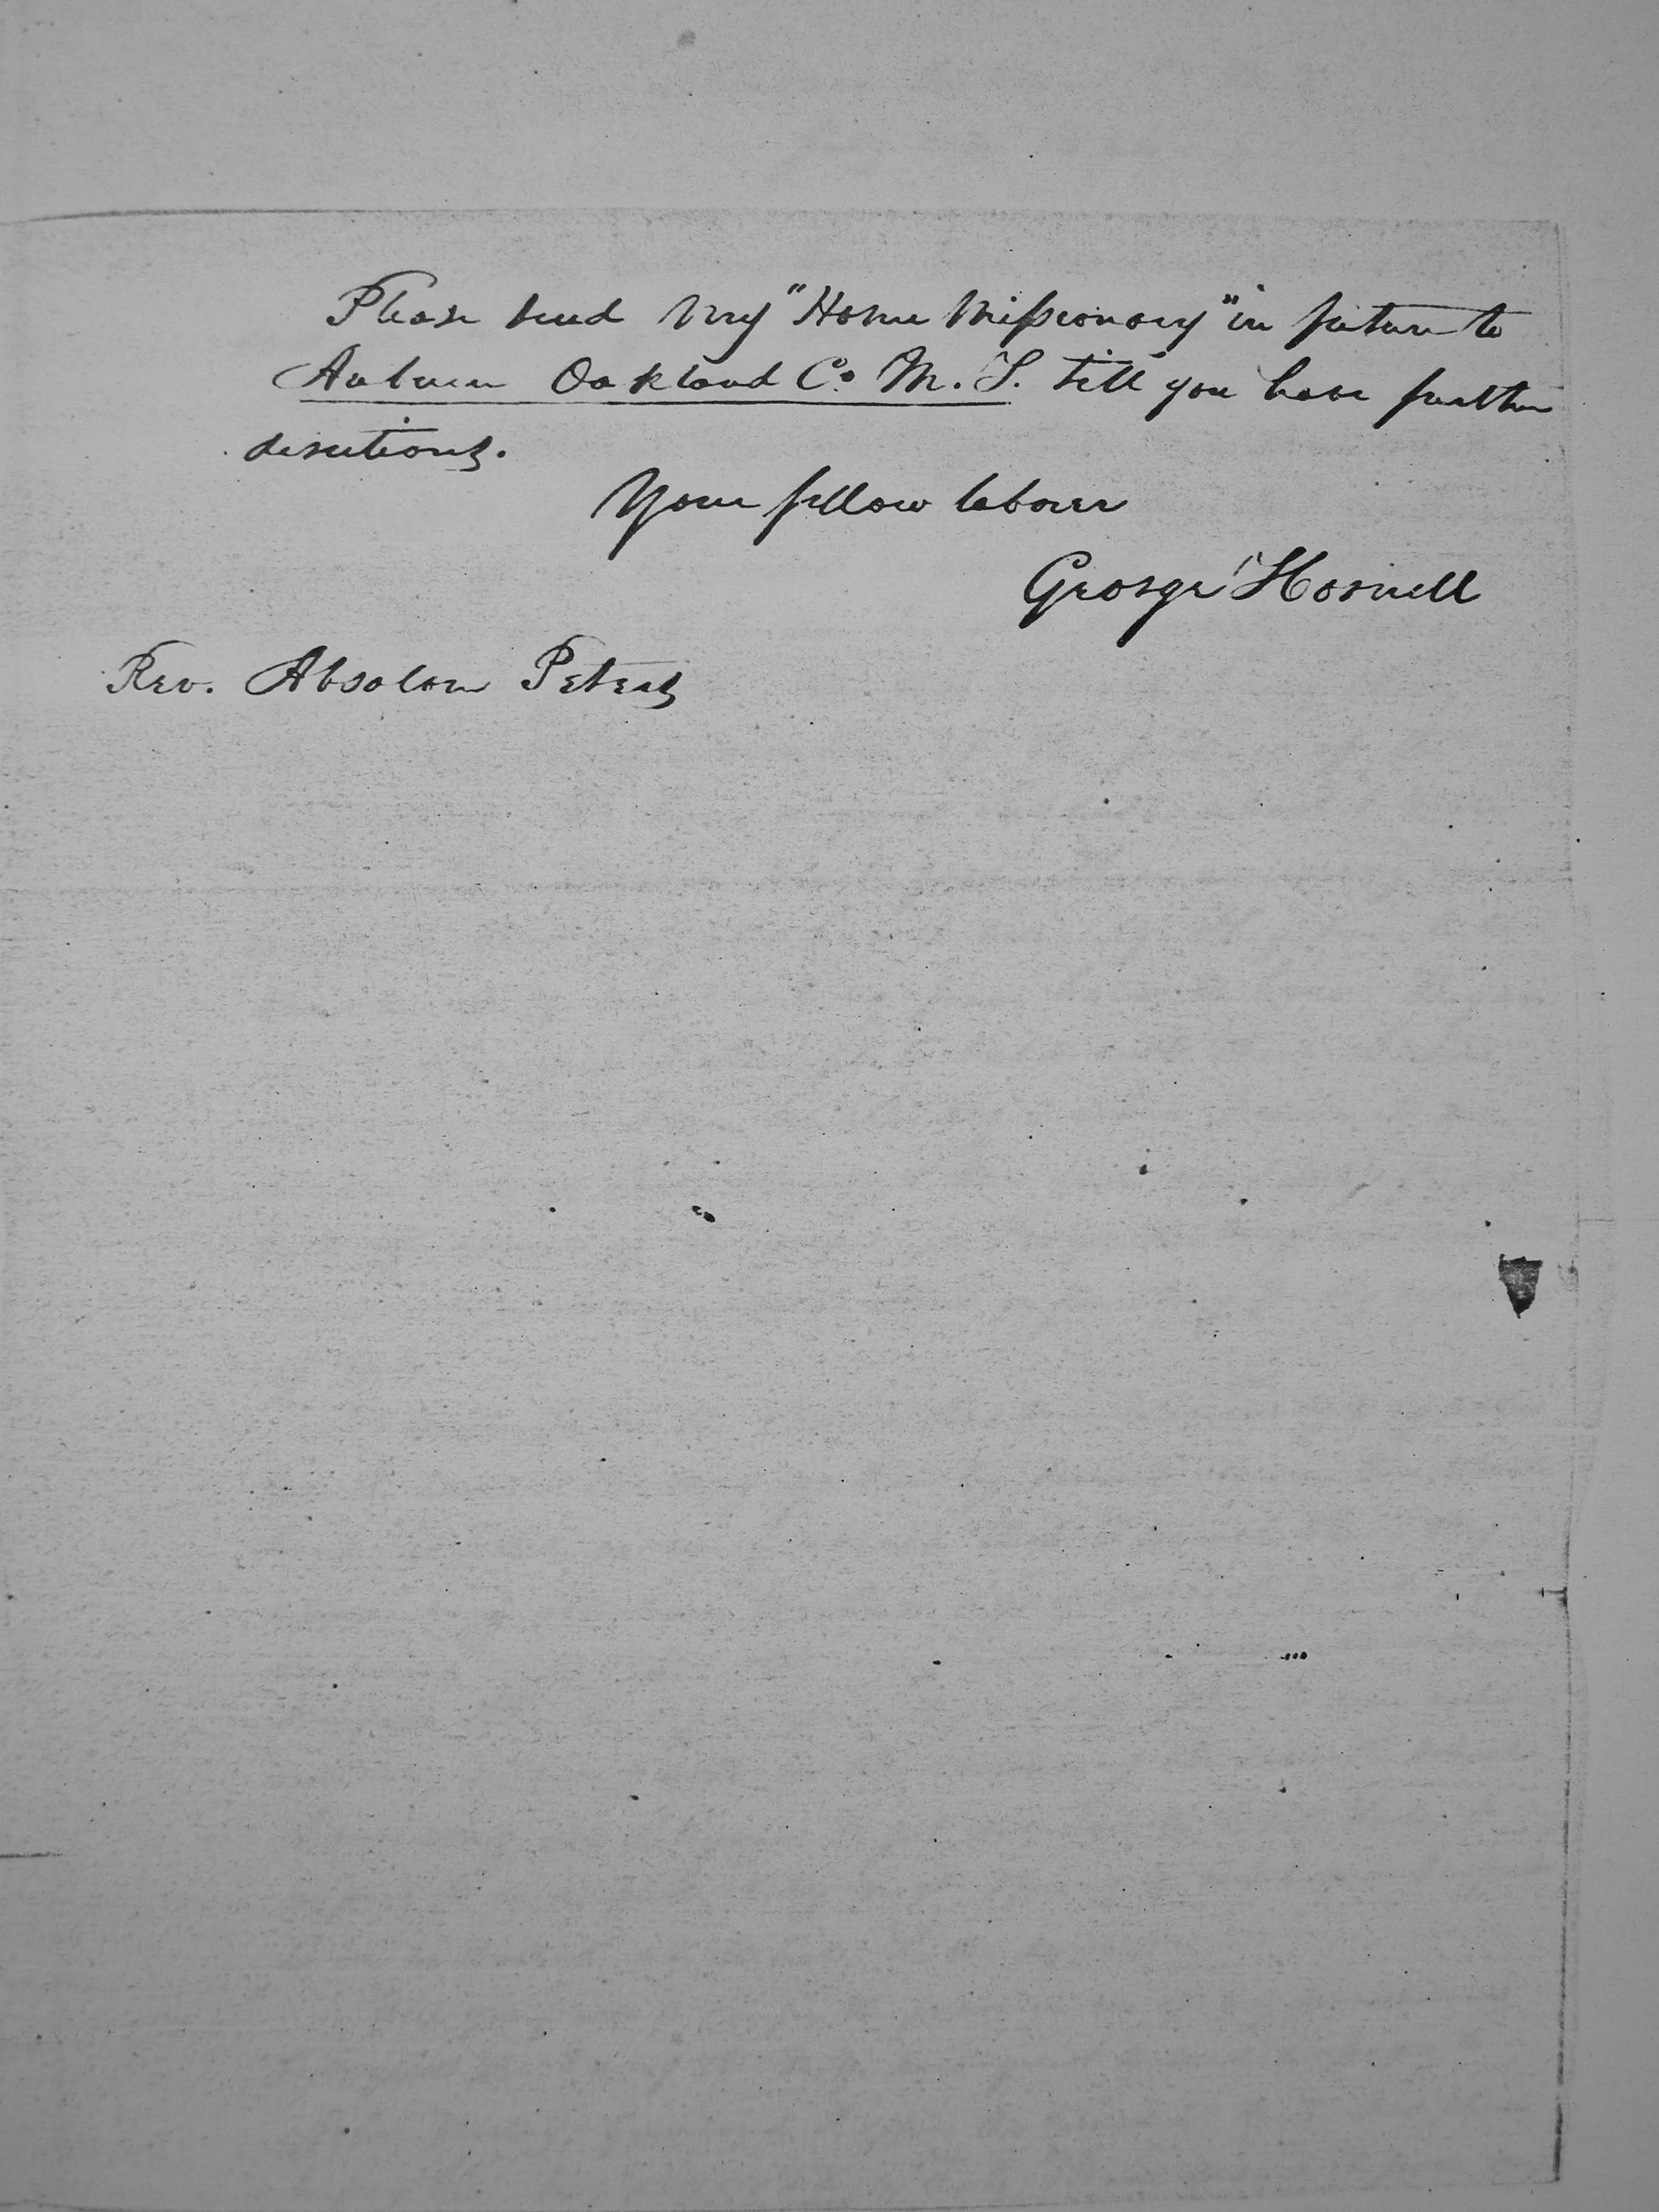 Please send my "Home Missionary" in future to
Auburn Oakland Co. M. T. till you have further
directions.
Your fellow laborer
George Hornell
Rev. Absalom Peters